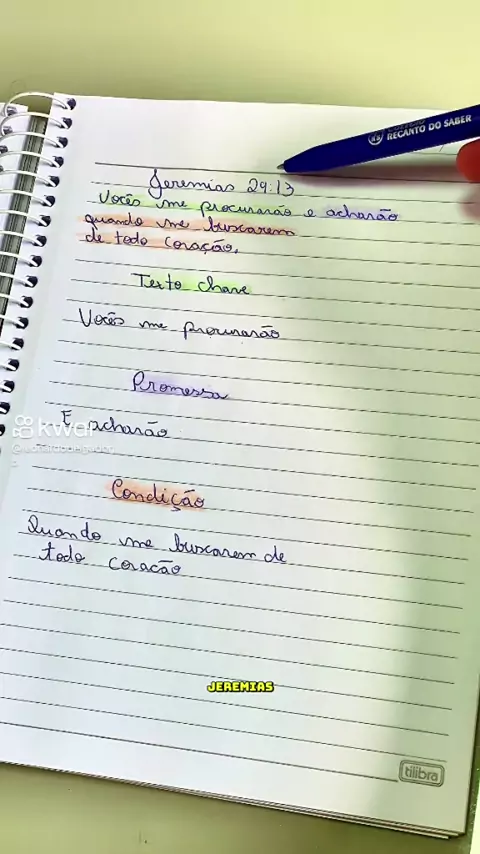 RECANTO DO SABER
Jeremias 29:13
Vocês me procurarão e acharão
quando me buscarem
de todo coração.
Texto chave
Vocês me procurarão
Promessa
E acharão
kwai
Condição
Quando me buscarem de
todo coração
JEREMIAS
tilibra